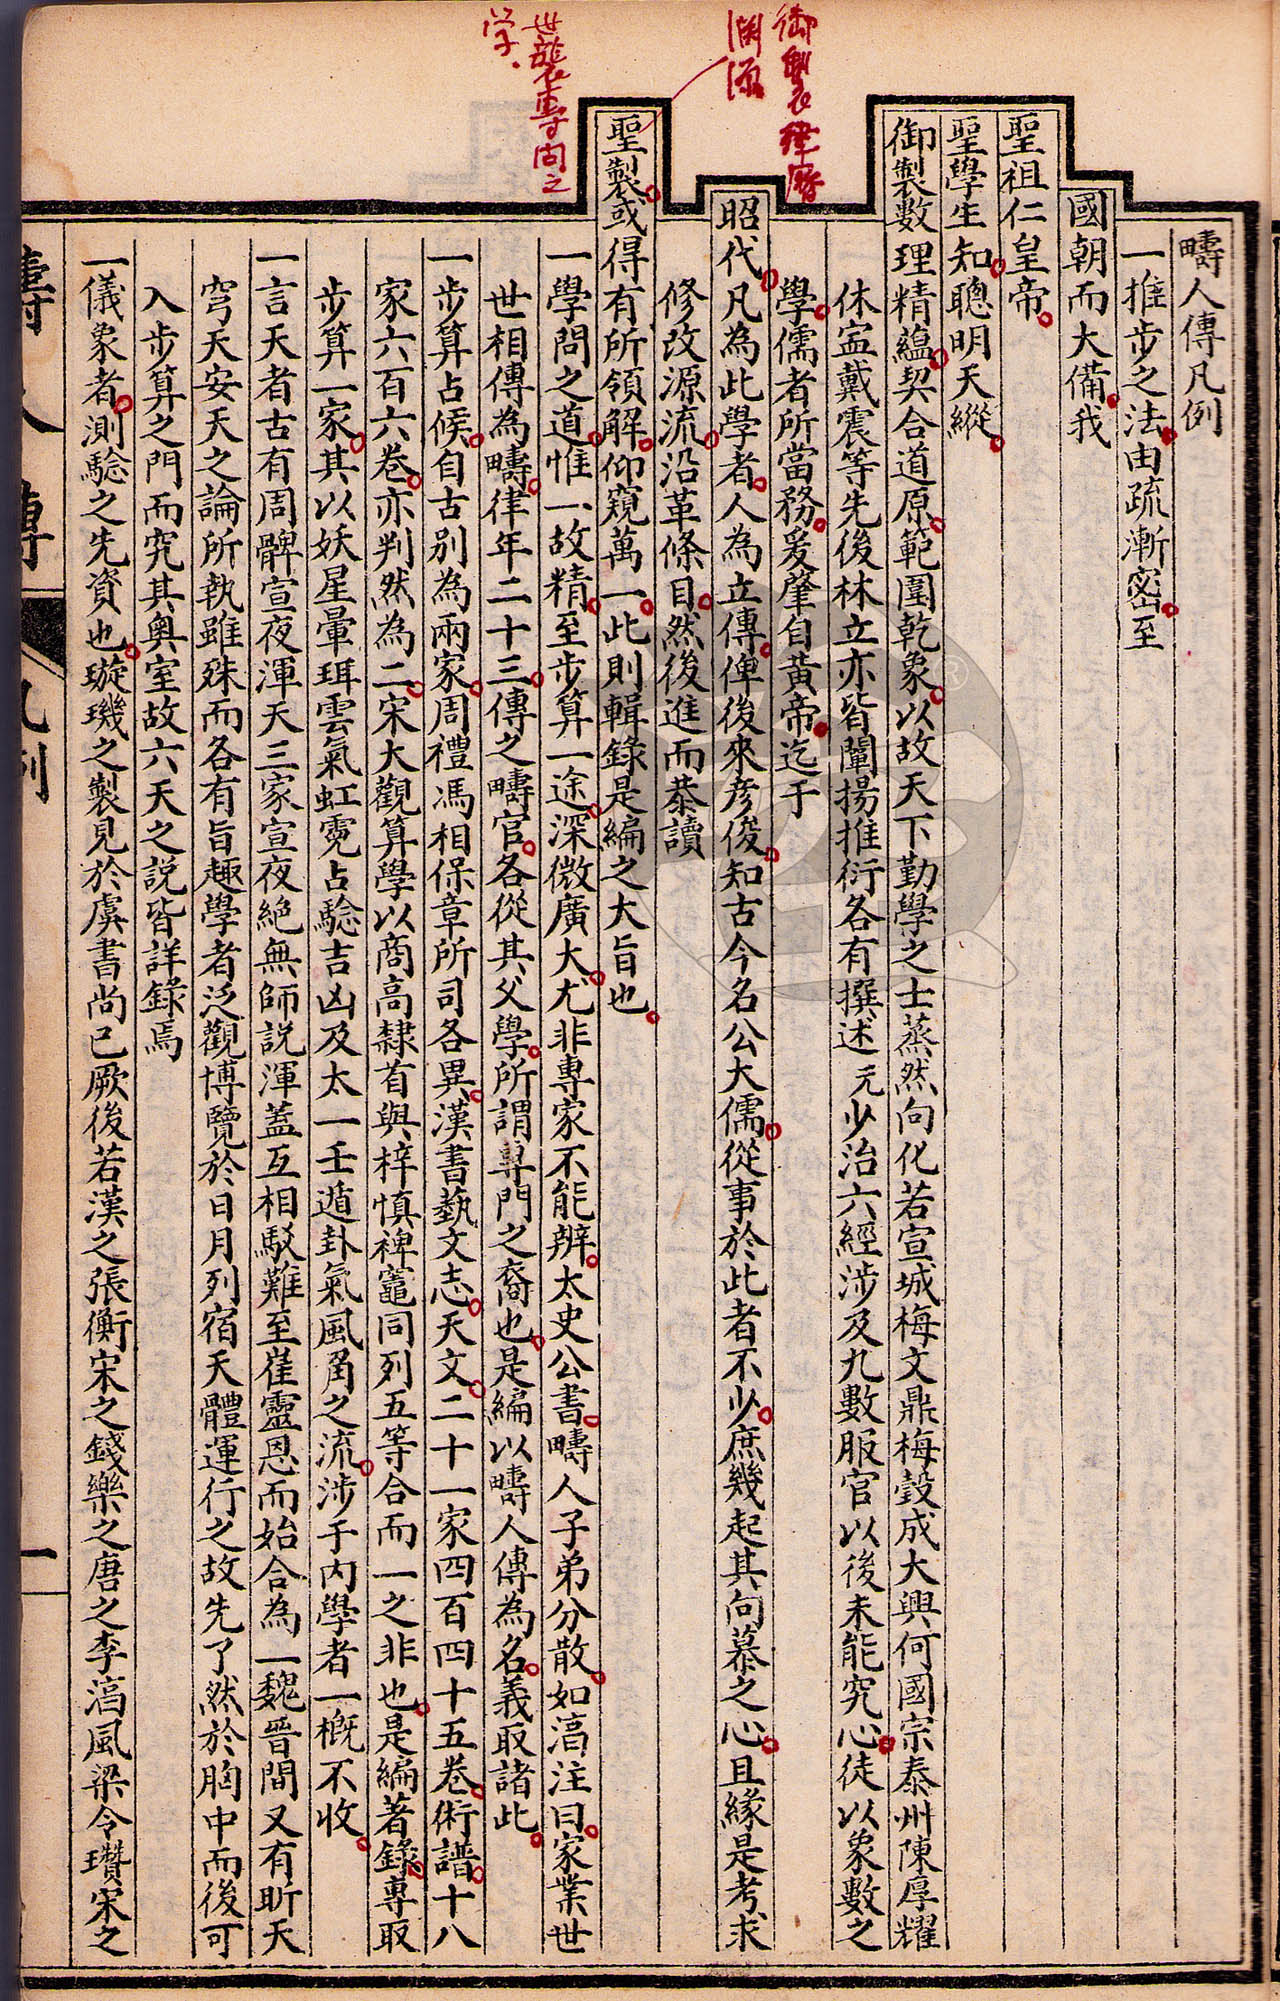 御製律曆
淵源
世襲專門之
学.
疇人傳凡例
一推步之法由疏漸密至
國朝而大備我
聖祖仁皇帝
聖學生知聰明天縱
御製數理精蘊契合道原範圍乾象以故天下勤學之士蒸然向化若宣城梅文鼎梅瑴成大興何國宗泰州陳厚耀
休寍戴震等先後林立亦皆闡揚推衍各有撰述元少治六經涉及九數服官以後未能究心徒以象數之
學儒者所當務爰肇自黃帝迄于
昭代凡為此學者人為立傳俾後來彦俊知古今名公大儒從事於此者不少庶幾起其向慕之心且緣是考求
修改源流沿革條目然後進而恭讀
聖製或得有所領解仰窺萬一此則輯錄是編之大旨也
一學問之道惟一故精至步算一途深微廣大尤非專家不能辨太史公書疇人子弟分散如滈注曰家業世
世相傳為疇律年二十三傳之疇官各從其父學所謂專門之裔也是編以疇人傳為名義取諸此
一步算占候自古別為兩家周禮馮相保章所司各異漢書藝文志天文二十一家四百四十五卷術譜十八
家六百六卷亦判然為二宋大觀算學以商高隸首與梓慎禆竈同列五等合而一之非也是編著錄專取
步算一家其以妖星暈珥雲氣虹霓占驗吉凶及太一壬遁卦氣風角之流涉于內學者一概不收
一言天者古有周髀宣夜渾天三家宣夜絶無師說渾蓋互相駁難至崔靈恩而始合為一魏晉間又有昕天
穹天安天之論所執雖殊而各有旨趣學者泛觀博覽於日月列宿天體運行之故先了然於胸中而後可
入步算之門而究其奧室故六天之說皆詳錄焉
一儀象者測驗之先資也璇璣之製見於虞書尚已厥後若漢之張衡宋之錢樂之唐之李滈風梁令瓚宋之
疇人傳
凡例
一